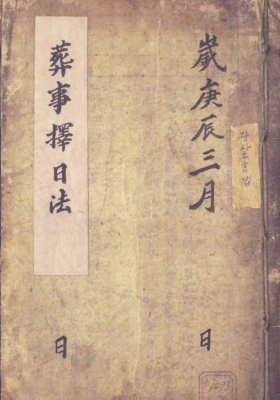 歲庚辰三月 日
葬事擇日法
日